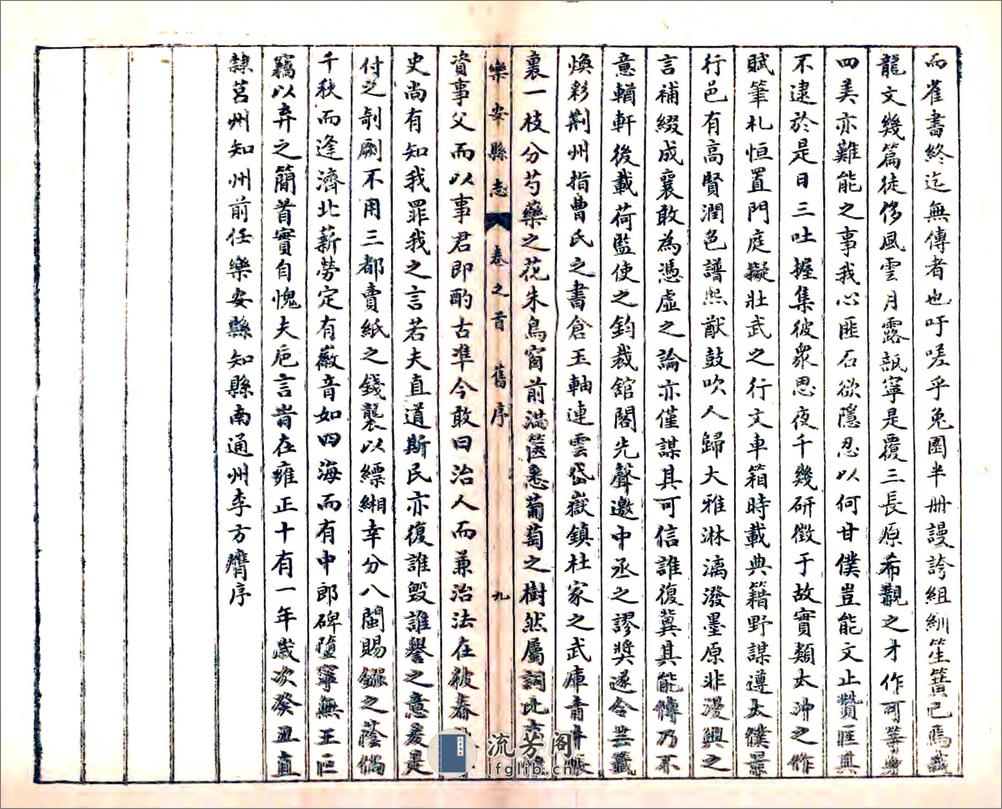 而雀書終迄無傳者也吁嗟乎兔園半冊謾誇組紃笙簧已焉哉
龍文幾篇徒侈風雲月露瓿寧是覆三長原希覯之才作可等身
四美亦難能之事我心匪石欲隱忍以何甘僕豈能文止贊匡其
不逮於是日三吐握集彼眾思夜千幾研徵于故實類太冲之作
賦筆札恒置門庭擬壯武之行文車箱時載典籍野謀遵太僕景
行邑有高賢潤色譜熙猷鼓吹人歸大雅淋漓潑墨原非漫興之
言補綴成襄敢為憑虛之論亦僅謀其可信誰復冀其能傳乃不
意輶軒後載荷監使之鈞裁舘閣先聲邀中丞之謬獎遂令芸籤
煥彩荆州指曹氏之書倉玉軸連雲岱嶽鎮杜家之武庫青
襄一枝分芍藥之花朱鳥窗前滿篋悉葡萄之樹然屬詞比
樂安縣志 卷之首 舊序 九
資事父而以事君即酌古準今敢曰治人而兼治法在彼春
史尚有知我罪我之言若夫直道斯民亦復誰毀誰譽之意爰是
付之剞劂不用三都賣紙之錢襲以縹緗幸分八閩賜鏹之蔭倘
千秋而逢濟北薪勞定有徽音如四海而有中郎碑壚寧無王臣
竊以弁之簡首實自愧夫巵言旹在雍正十有一年歲次癸丑直
隸莒州知州前任樂安縣知縣南通州李方膺序
流芳阁
lfglib.cn